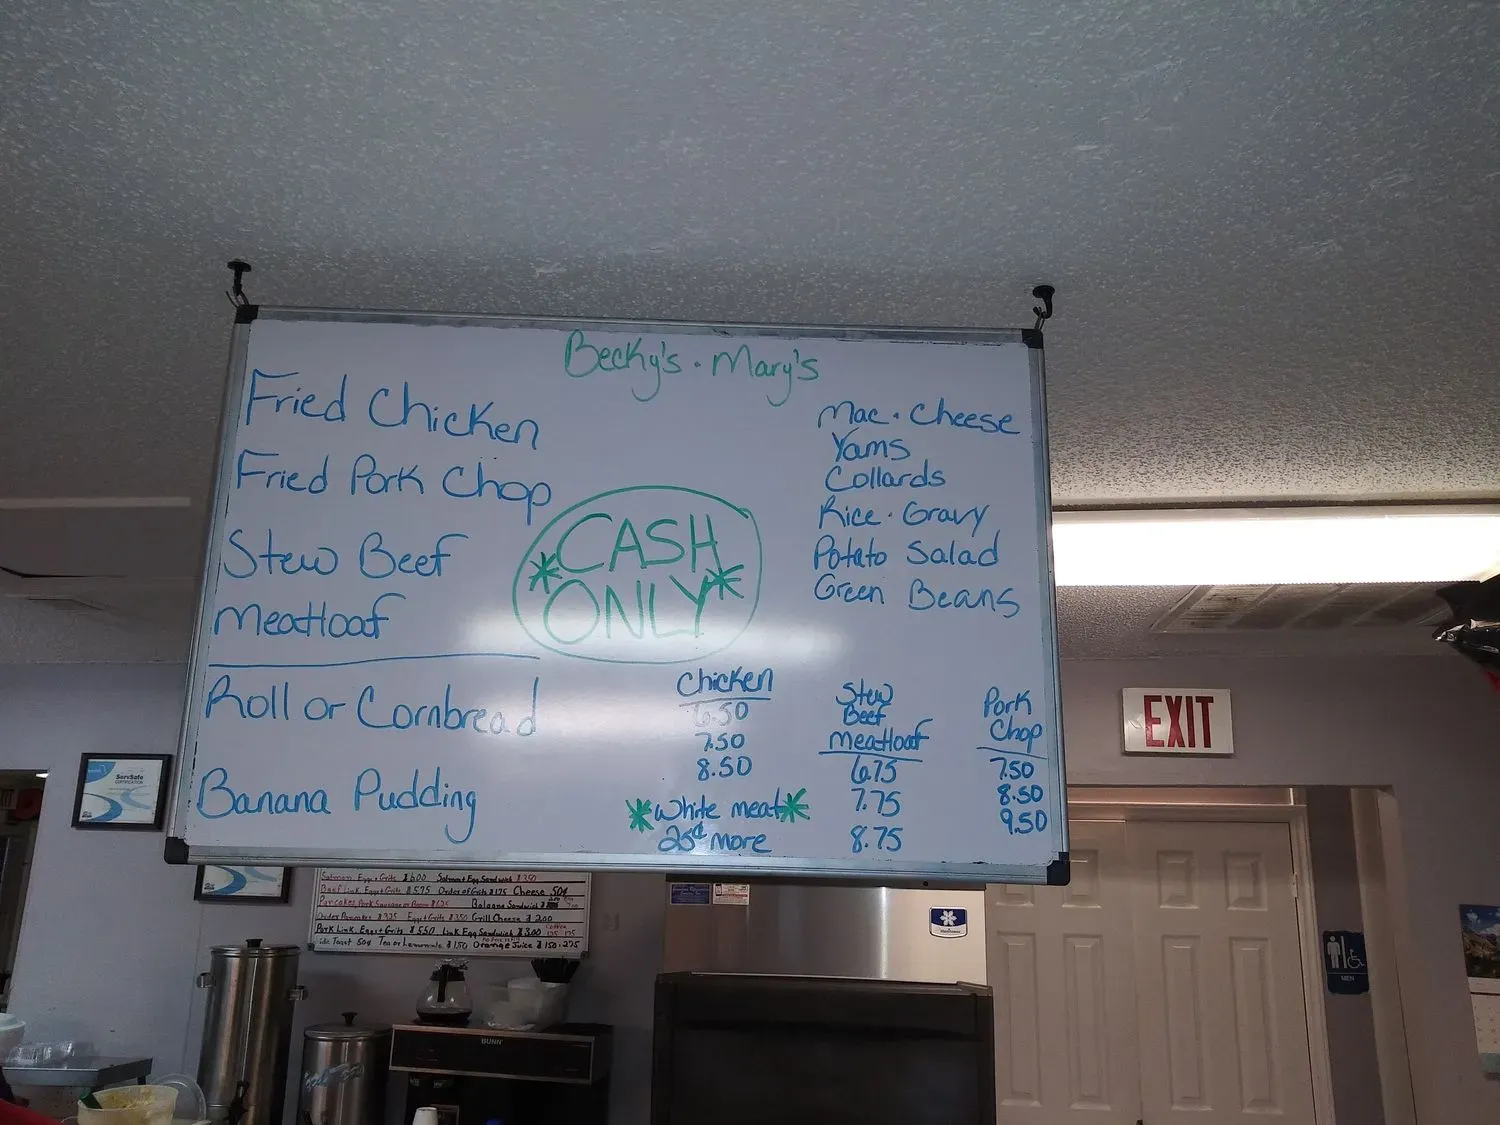 Becky's · Mary's
Fried Chicken
Fried Pork Chop
Stew Beef
Meatloaf
Roll or Cornbread
Banana Pudding
*CASH
ONLY*
Mac · Cheese
Yams
Collards
Rice · Gravy
Potato Salad
Green Beans
Chicken
6.50
7.50
8.50
*White meat*
25¢ more
Stew
Beef
Meatloaf
6.75
7.75
8.75
Pork
Chop
7.50
8.50
9.50
EXIT
ServSafe
CERTIFICATION
Salmon Eggs & Grits $6.00 Salmon & Egg Sandwich $3.50
Beef Link Eggs & Grits $5.75 Order of Grits $1.75 Cheese 50¢
Pancakes, Pork Sausage or Bacon $6.25 Balogna Sandwich
Order Pancakes $3.25 Eggs & Grits $3.50 Grill Cheese $2.00
Pork Link, Eggs & Grits $5.50 Link Egg Sandwich $3.00
Side Toast 50¢ Tea or Lemonade $1.50 Orange Juice $1.50 · 2.75
BUNN
MEN